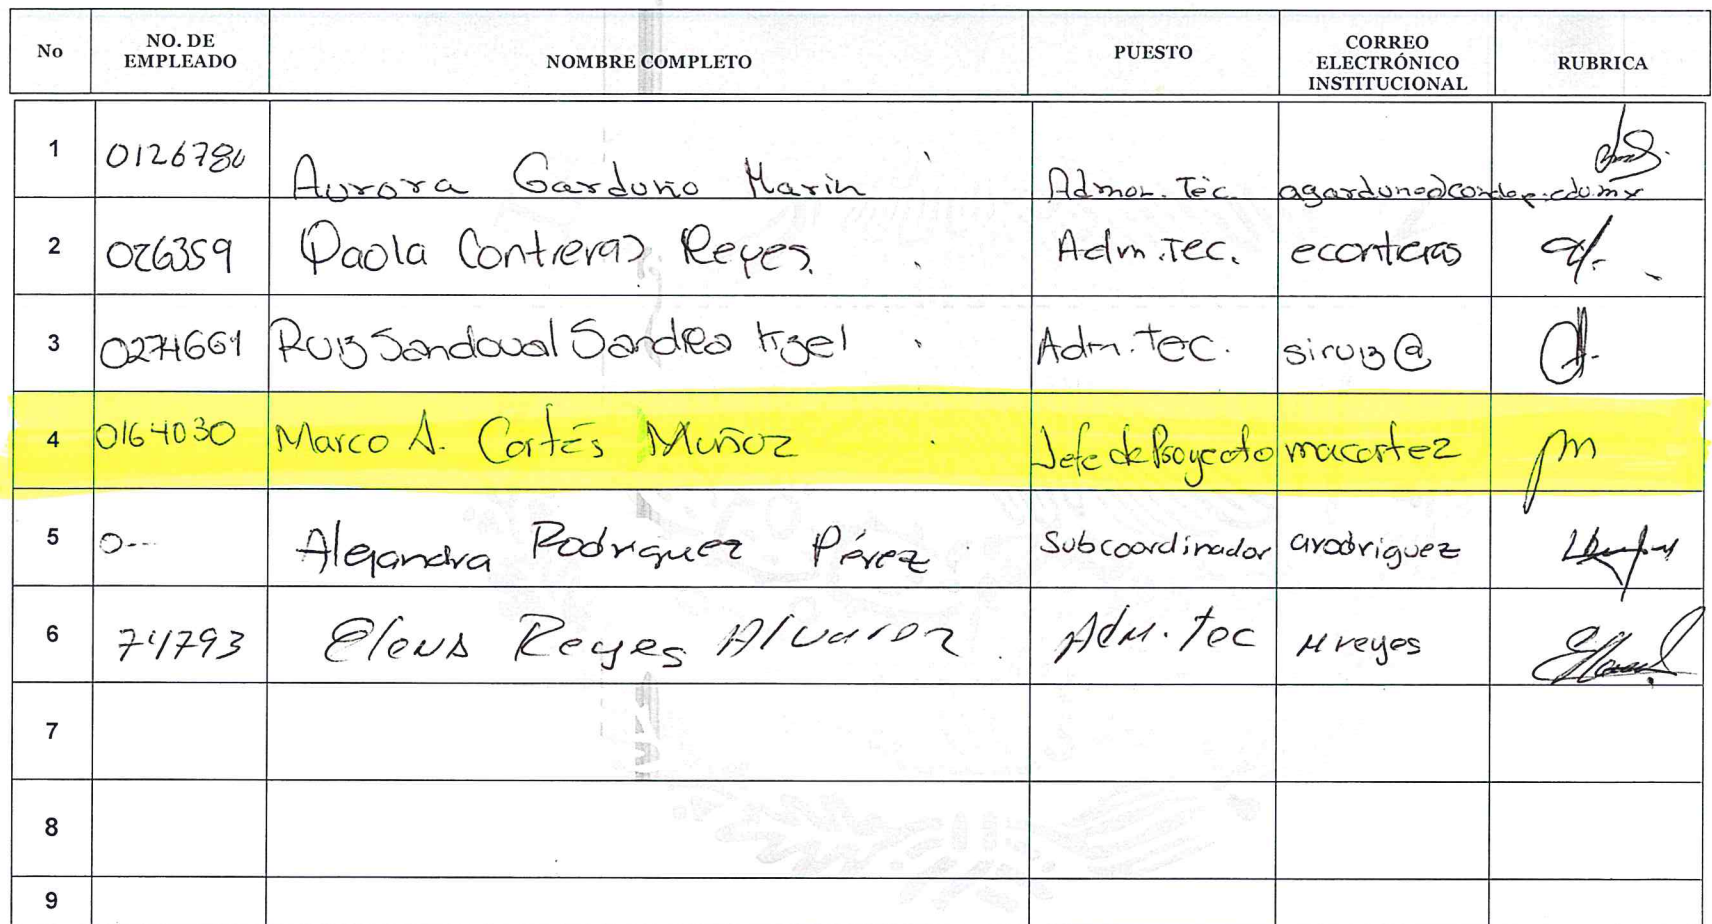 No NO. DE EMPLEADO NOMBRE COMPLETO PUESTO CORREO ELECTRÓNICO INSTITUCIONAL RUBRICA
1 Aurora Garduño Marin Admor. Téc.
2 026359 Paola Contreras Reyes. Adm.Tec. econtreras
3 0274661 Ruiz Sandoval Sandra Itzel Adm.tec. siruiz@
4 0164030 Marco A. Cortés Muñoz Jefe de Proyecto macortez
5 0--- Alejandra Rodriguez Pérez Subcoordinador arodriguez
6 74793 Elena Reyes Alvarez Adm.tec Mreyes
7
8
9